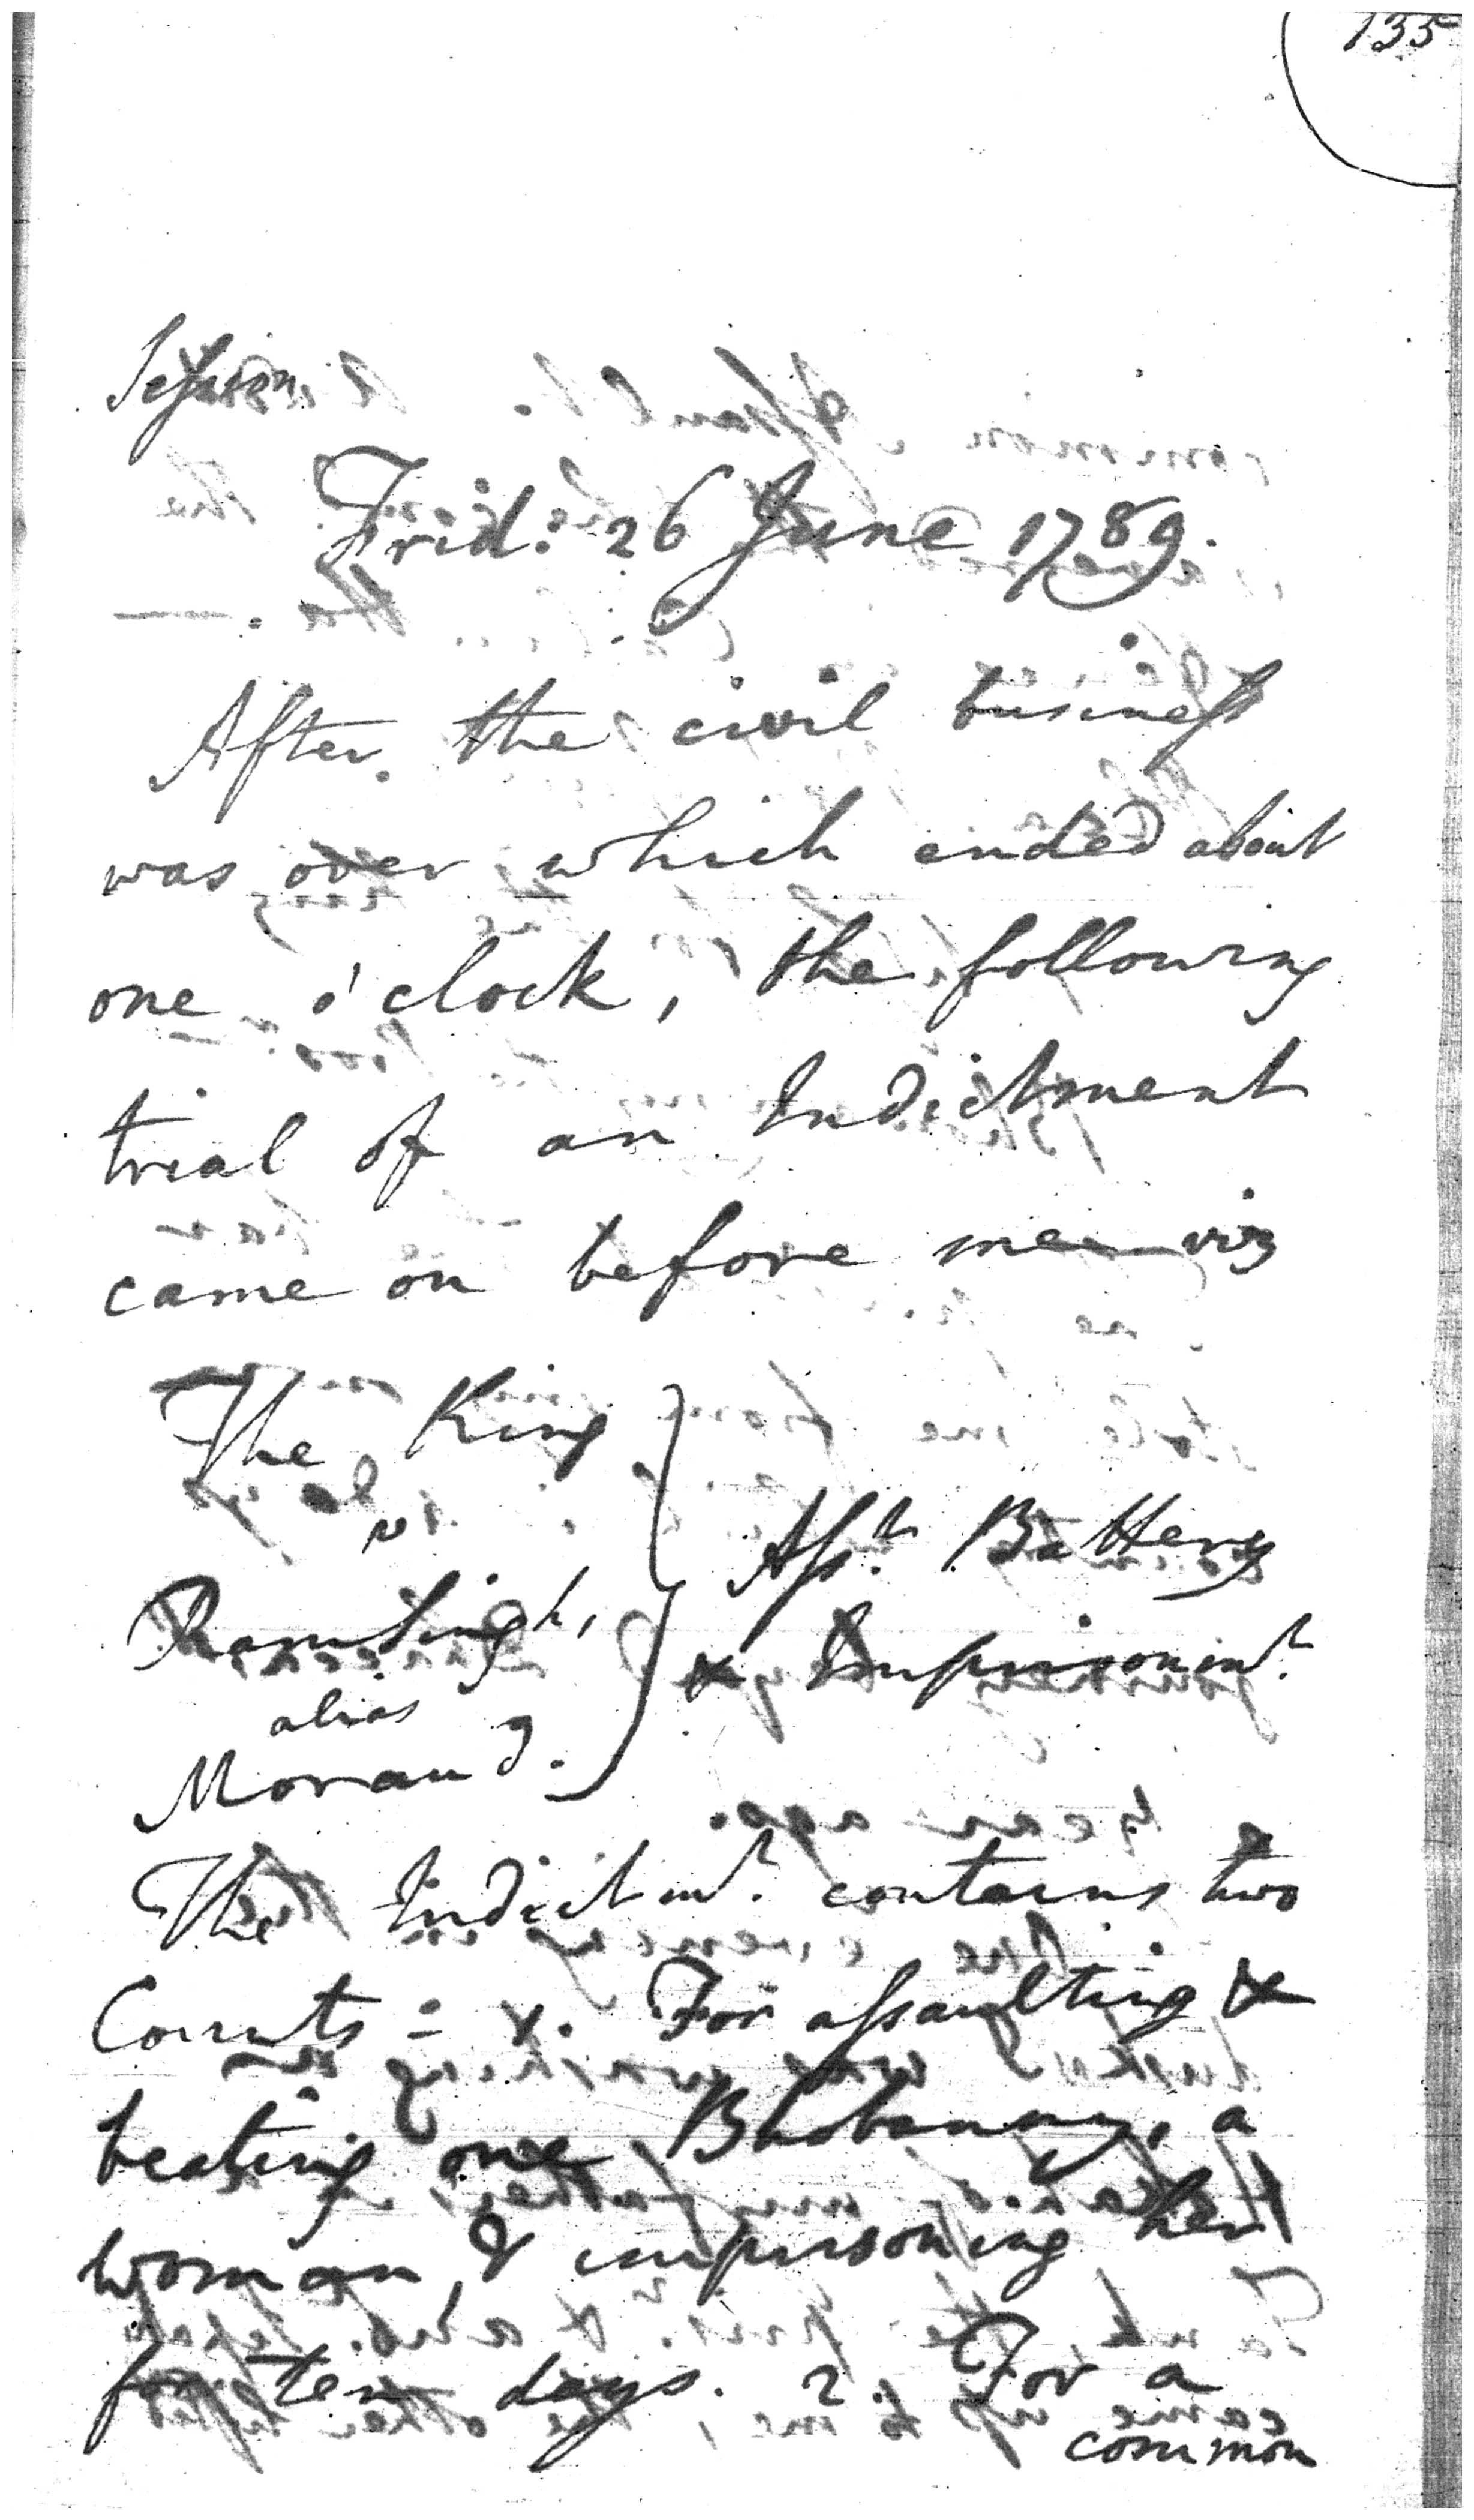 135
Session.
Frid: 26 June 1789.
After the civil business
was over which ended about
one o'clock, the following
trial of an Indictment
came on before me viz
The King
v
Ramsingh,
alias
Morand.
Asst. Battery
& Imprisonmt.
The Indictmt. contains two
Counts = 1. For assaulting &
beating one Bhobanny, a
woman, & imprisoning her
for ten days. 2. For a
common